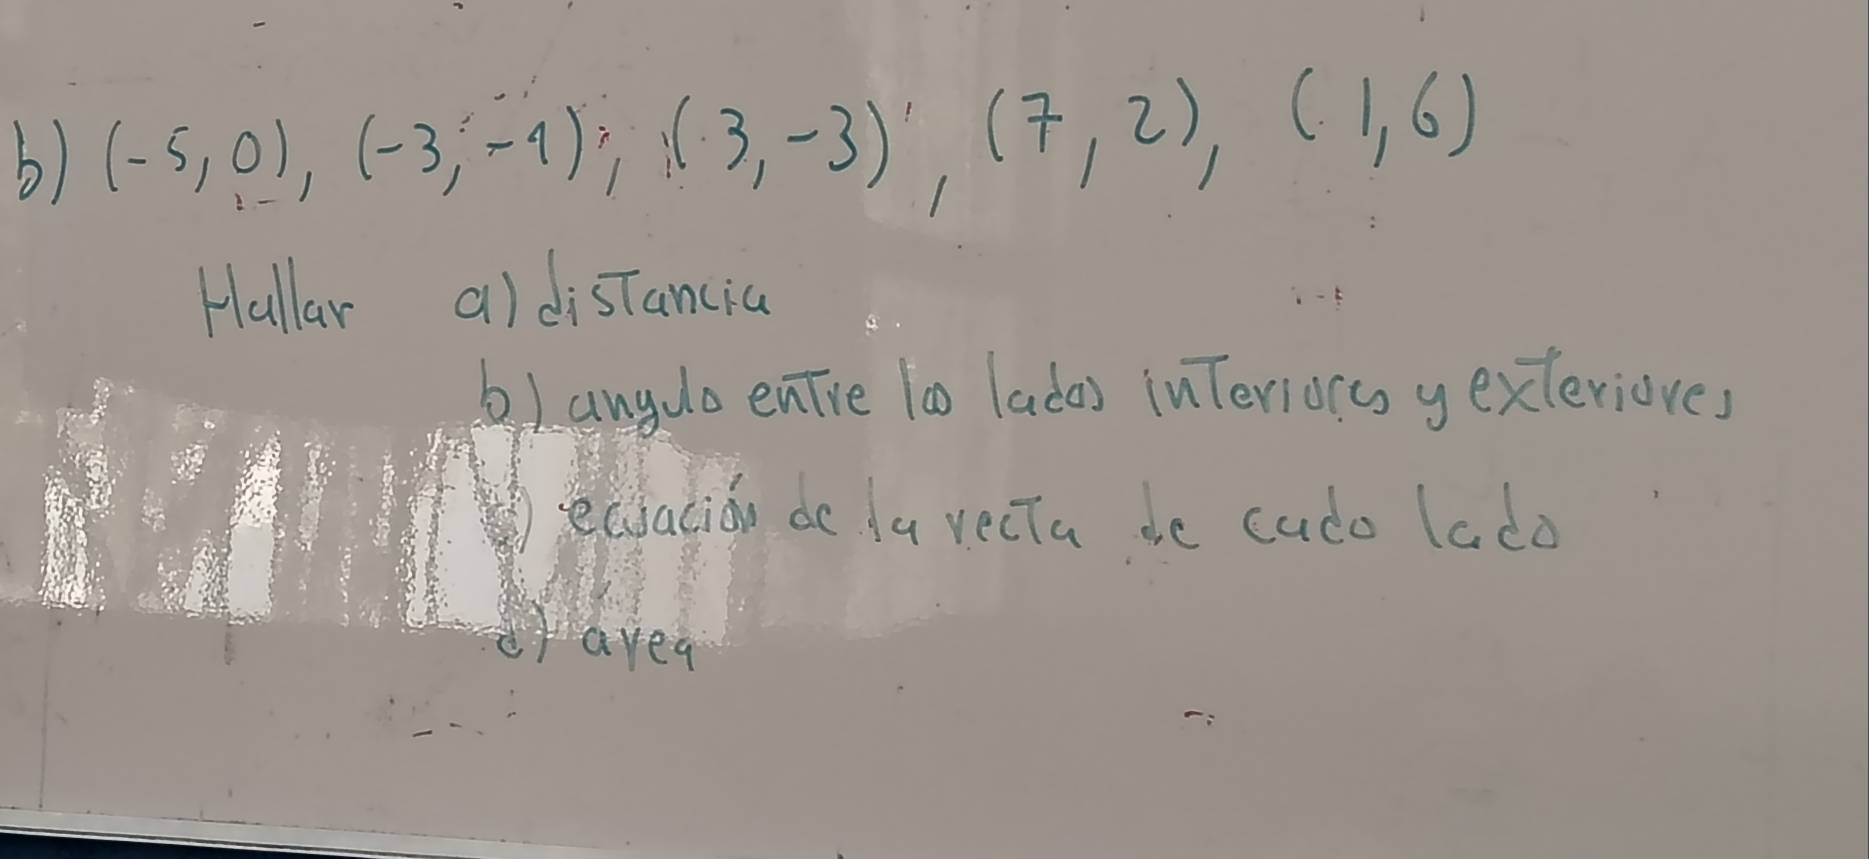 b) (-5,0), (-3,-4), (3,-3), (7,2), (1,6)
Hallar a) distancia
b) angulo entre los lados interiores y exteriores
c) ecuación de la recta de cada lado
d) área